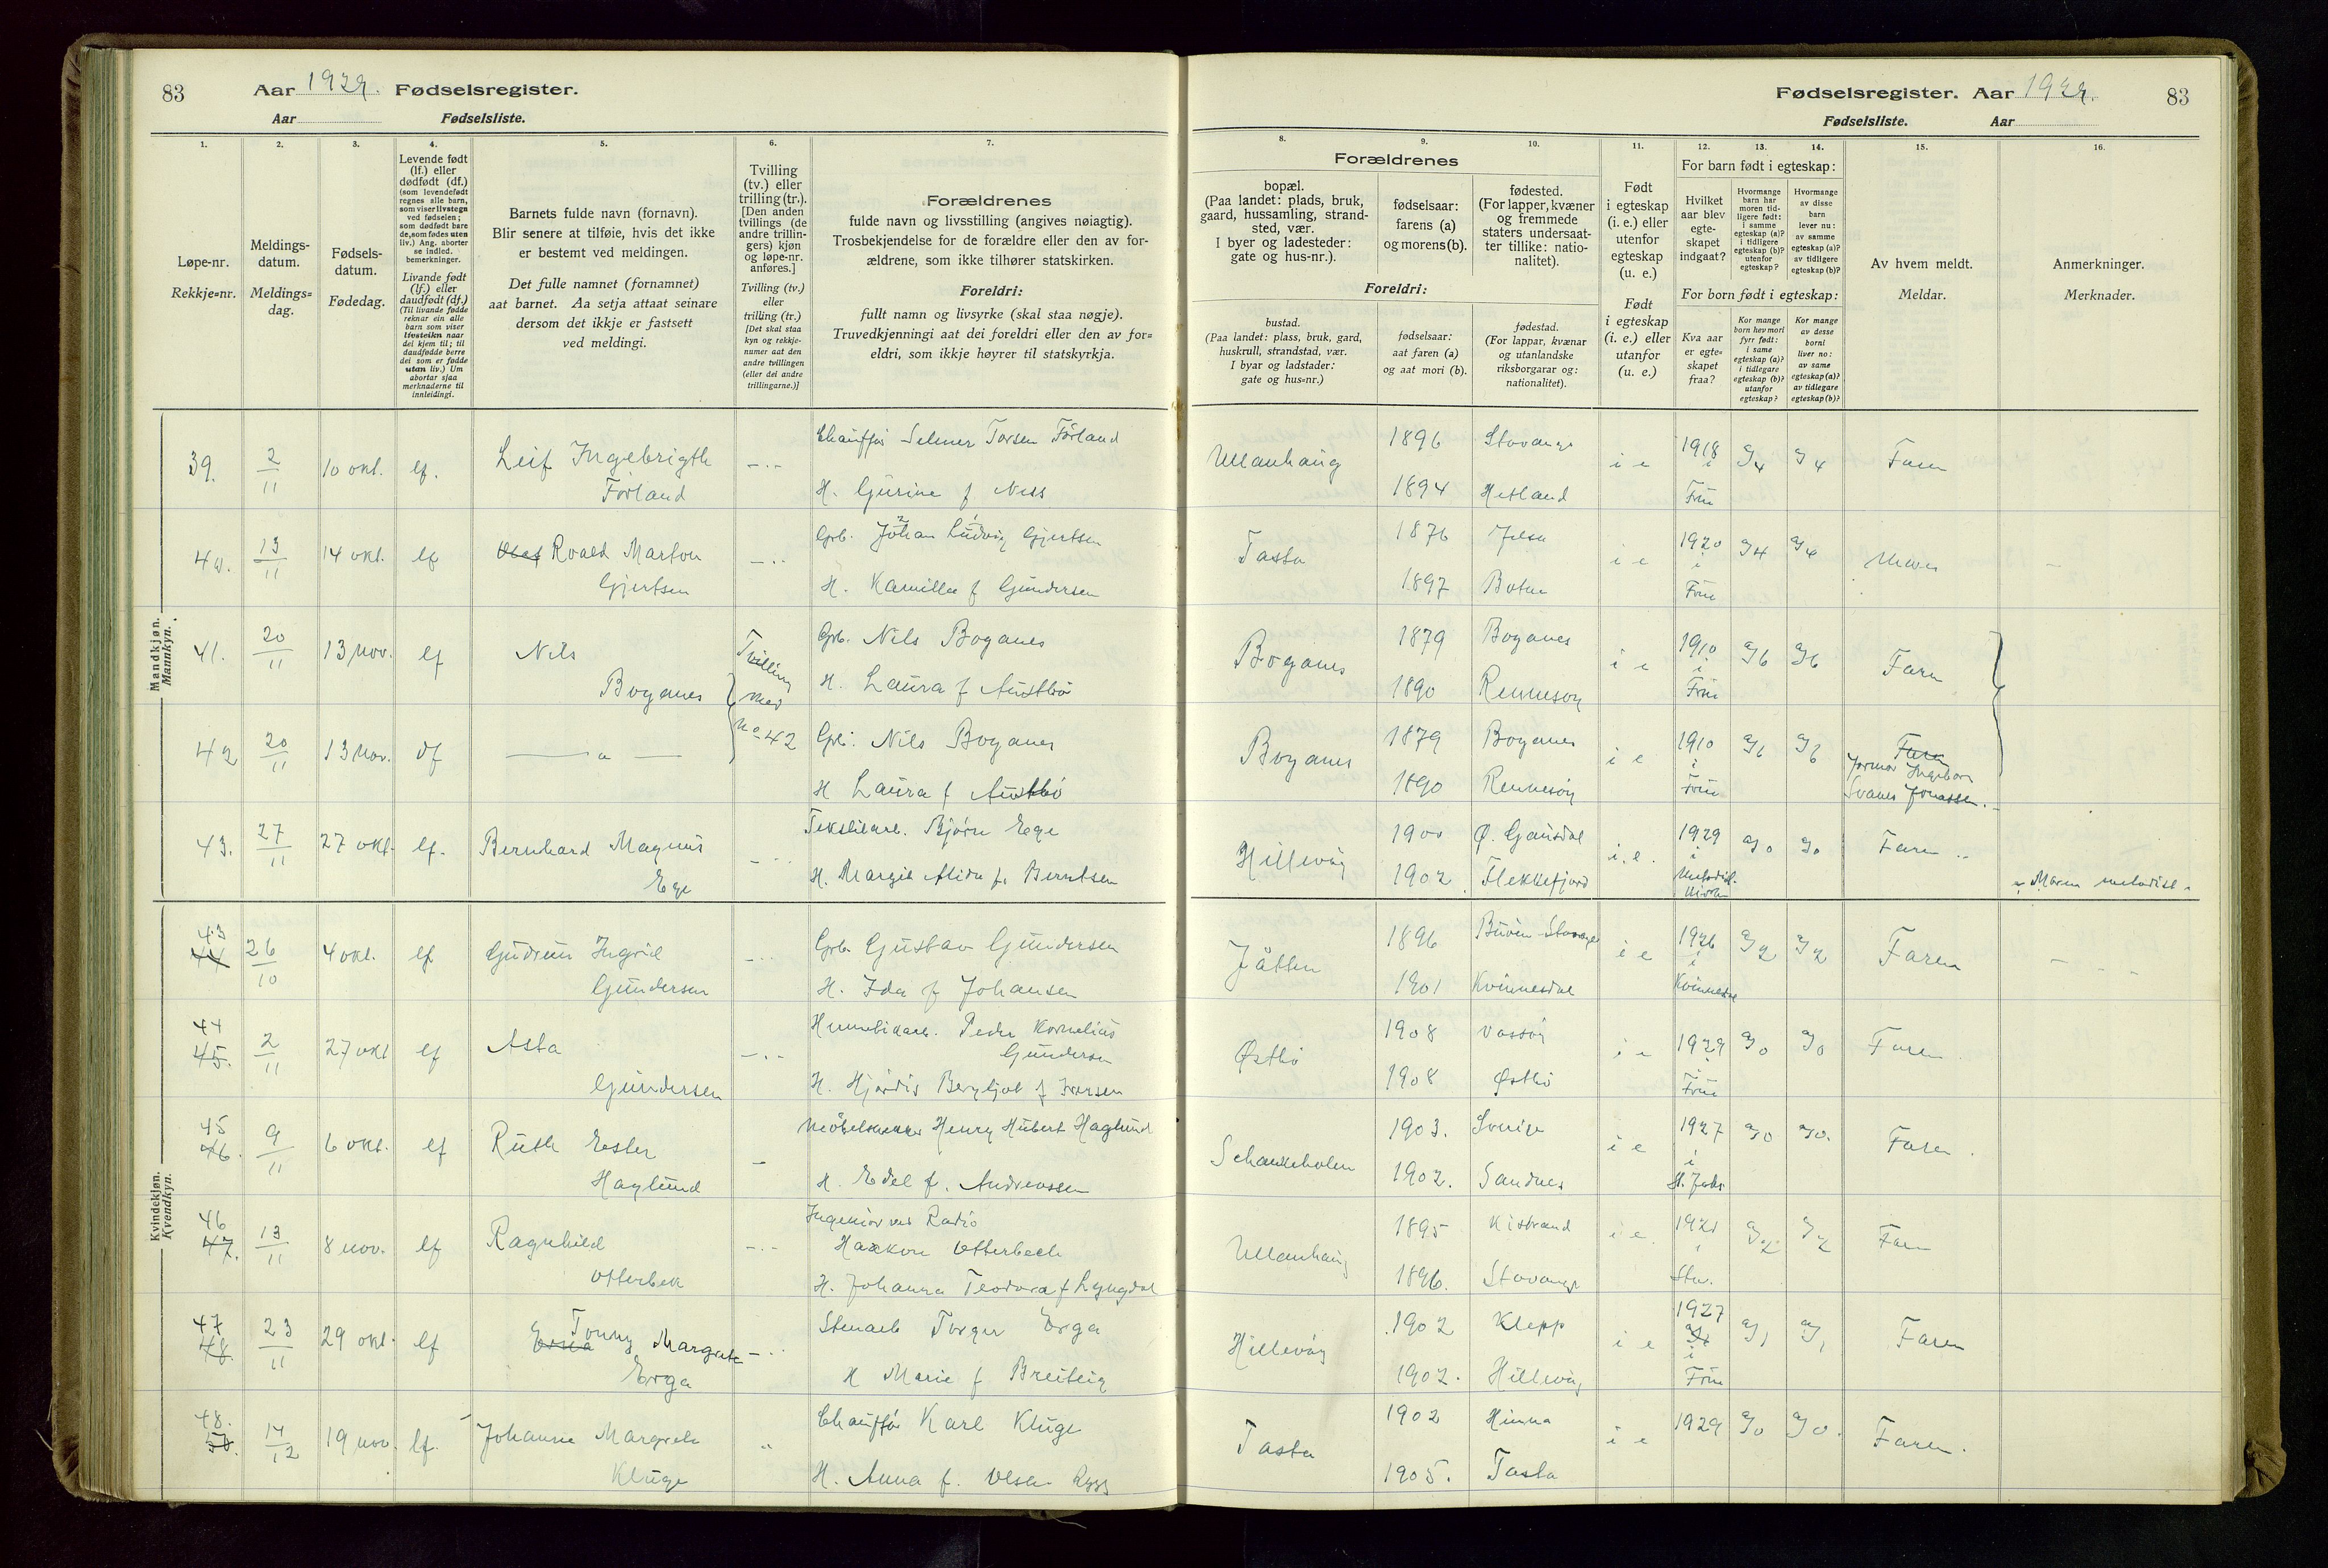 83
Aar 1929. Fødselsregister.
Aar Fødselsliste.
Fødselsregister. Aar 1929.
83
Fødselsliste. Aar
1.
Løpe-nr.
Rekkje=nr.
2.
Meldings-
datum.
Meldings=
dag.
3.
Fødsels-
datum.
Fødedag.
4.
Levende født
(lf.) eller
dødfødt (df.)
(som levendefødt
regnes alle barn,
som viser livstegn
ved fødselen;
som dødfødt bare
de, som fødes uten
liv.) Ang. aborter
se indled.
bemerkninger.
Livande født
(lf.) eller
daudfødt (df.)
(Til livande fødde
reknar ein alle
barn som viser
livsteikn naar
dei kjem til; til
daudfødde berre
dei som er fødde
utan liv.) Um
abortar sjaa
merknaderne til
innleidingi.
5.
Barnets fulde navn (fornavn).
Blir senere at tilføie, hvis det ikke
er bestemt ved meldingen.
Det fulle namnet (fornamnet)
aat barnet. Aa setja attaat seinare
dersom det ikkje er fastsett
ved meldingi.
6.
Tvilling
(tv.) eller
trilling (tr.).
[Den anden
tvillings (de
andre trillin-
gers) kjøn
og løpe-nr.
anføres.]
Tvilling (tv.)
eller
trilling (tr.)
[Det skal staa
kyn og rekkje-
numer aat den
andre tvillingen
(eller dei andre
trillingarne.)]
7.
Forældrenes
fulde navn og livsstilling (angives nøiagtig).
Trosbekjendelse for de forældre eller den av for-
ældrene, som ikke tilhører statskirken.
Foreldri:
fullt namn og livsyrke (skal staa nøgje).
Truvedkjenningi aat dei foreldri eller den av for=
eldri, som ikkje høyrer til statskyrkja.
8.
Forældrenes
bopæl.
(Paa landet: plads, bruk,
gaard, hussamling, strand-
sted, vær.
I byer og ladesteder:
gate og hus-nr.).
Foreldri:
bustad.
(Paa landet: plass, bruk, gard,
huskrull, strandstad, vær.
I byar og ladstader:
gate og hus=nr.)
9.
fødselsaar:
farens (a)
og morens (b).
fødselsaar:
aat faren (a)
og aat mori (b).
10.
fødested.
(For lapper, kvæner
og fremmede
staters undersaat-
ter tillike: natio-
nalitet).
fødestad.
(For lappar, kvænar
og utanlandske
riksborgarar og:
nationalitet).
11.
Født
i egteskap
(i. e.) eller
utenfor
egteskap
(u. e.)
Født
i egteskap
(i. e.) eller
utanfor
(u. e.)
12. 13. 14.
For barn født i egteskap:
Hvilket
aar blev
egte-
skapet
indgaat?
Hvormange
barn har
moren tid-
ligere født:
i samme
egteskap (a)?
i tidligere
egteskap (b)?
utenfor
egteskap?
Hvormange
av disse
barn
lever nu:
av samme
egteskap (a)?
av tidligere
egteskap (b)?
For born født i egteskap:
Kva aar
er egte=
skapet
fraa?
Kor mange
born hev mori
fyrr født:
i same
egteskap (a)?
i tidlegare
egteskap (b)?
utanfor
egteskap?
Kor mange
av desse
borni
liver no:
av same
egteskap (a)?
av tidlegare
egteskap (b)?
15.
Av hvem meldt.
Meldar.
16.
Anmerkninger.
Merknader.
Mandkjøn.
Mannkyn.
39. 2/11 10 okt. lf. Leif Ingebrigth
Førland
Chauffør Selmer Torsen Førland
H. Gurine f Ness
Ullanhaug 1896 Stavanger i e 1918 a/4 a/4 Faren
1894 Hetland Frue
40. 13/11 14 okt. lf Olaf Roald Marton
Gjertsen
Grb. Johan Ludvig Gjertsen
H. Kamilla f Gundersen
Tasta 1876 Jelsa i e 1920 a/4 a/4 Moren
1897 Botne Frue
41. 20/11 13 nov. lf Nils
Boganes
Tvilling
med
no 42
Grb. Nils Boganes
H. Laura f Austbø
Boganes 1879 Boganes i e 1910 a/6 a/6 Faren
1890 Rennesøy Frue
42 20/11 13 nov. df
Grb. Nils Boganes
H Laura f Austbø
Boganes 1879 Boganes i e 1910 a/6 a/6 Faren
1890 Rennesøy Frue
Jormor Ingeborg
Svanes Jonassen.
43. 27/11 27 okt. lf. Bernhard Magnus
Ege
Tekstilarb. Bjørn Ege
H. Margit Alida f. Berntsen
Hillevåg 1900 Ø. Gausdal i. e. 1929 a/0 a/0 Faren
1902 Flekkefjord Metodist-
kirken
Moren metodist
Kvindekjøn.
Kvendkyn.
43
44 26/10 4 okt. lf Gudrun Ingrid
Gundersen
Grb. Gustav Gundersen
H. Ida f Johansen
Jåtten 1896 Buøen Stavanger i e 1926 a/2 a/2 Faren
1901 Kvinnesdal Kvinnesdal
44
45. 2/11 27 okt lf Asta
Gundersen
Hermetikarb. Peder Kornelius
Gundersen
H. Hjørdis Bergljot f Iversen
Østbø 1908 Vassøy i e 1929 a/0 a/0 Faren
1908 Østbø Frue
45
46. 9/11 6 okt. lf Ruth Ester
Haglund
Møbelsnekker Henry Hubert Haglund
H. Edel f. Andreassen
Schankeholen 1903. Sverige i e 1927 a/0 a/0. Faren
1902. Sandnes St. Joh.
46
47. 13/11 8 nov. lf Ragnhild
Otterbek
Ingeniør ved Radio
Haakon Otterbech
H. Johanna Teodora f Lyngdal
Ullanhaug 1895 Kistrand i e. 1921 a/2 a/2 Faren
1896. Stavanger Stv.
47
48. 23/11 29 okt. lf Tonny Margrete
Erga
Stenarb Torger Erga
H Marie f Breiteig
Hillevåg 1902 Klepp i e 1927 a/1 a/1 Faren
1902. Hillevåg Frue
48.
50. 14/12 19 nov. lf. Johanne Margrete
Kluge
Chauffør Karl Kluge
H. Anna f. Olsen Rygg
Tasta 1902 Hinna i e 1929 a/0 a/0. Faren.
1905. Tasta